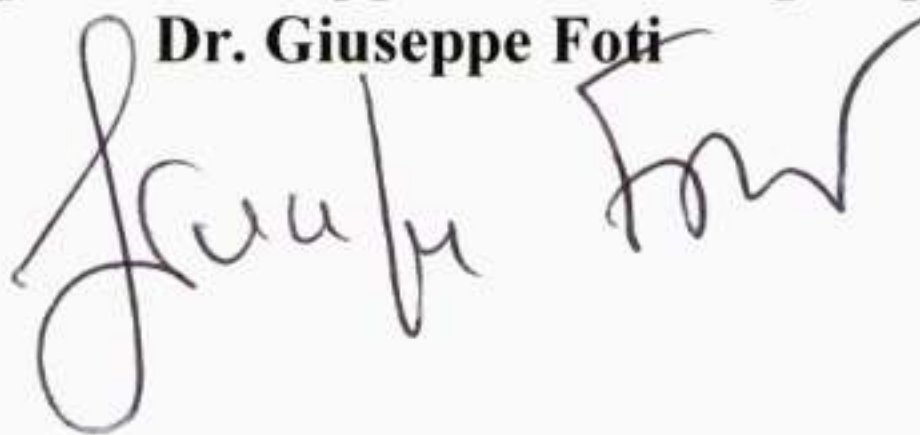 Dr. Giuseppe Foti
Giuseppe Foti